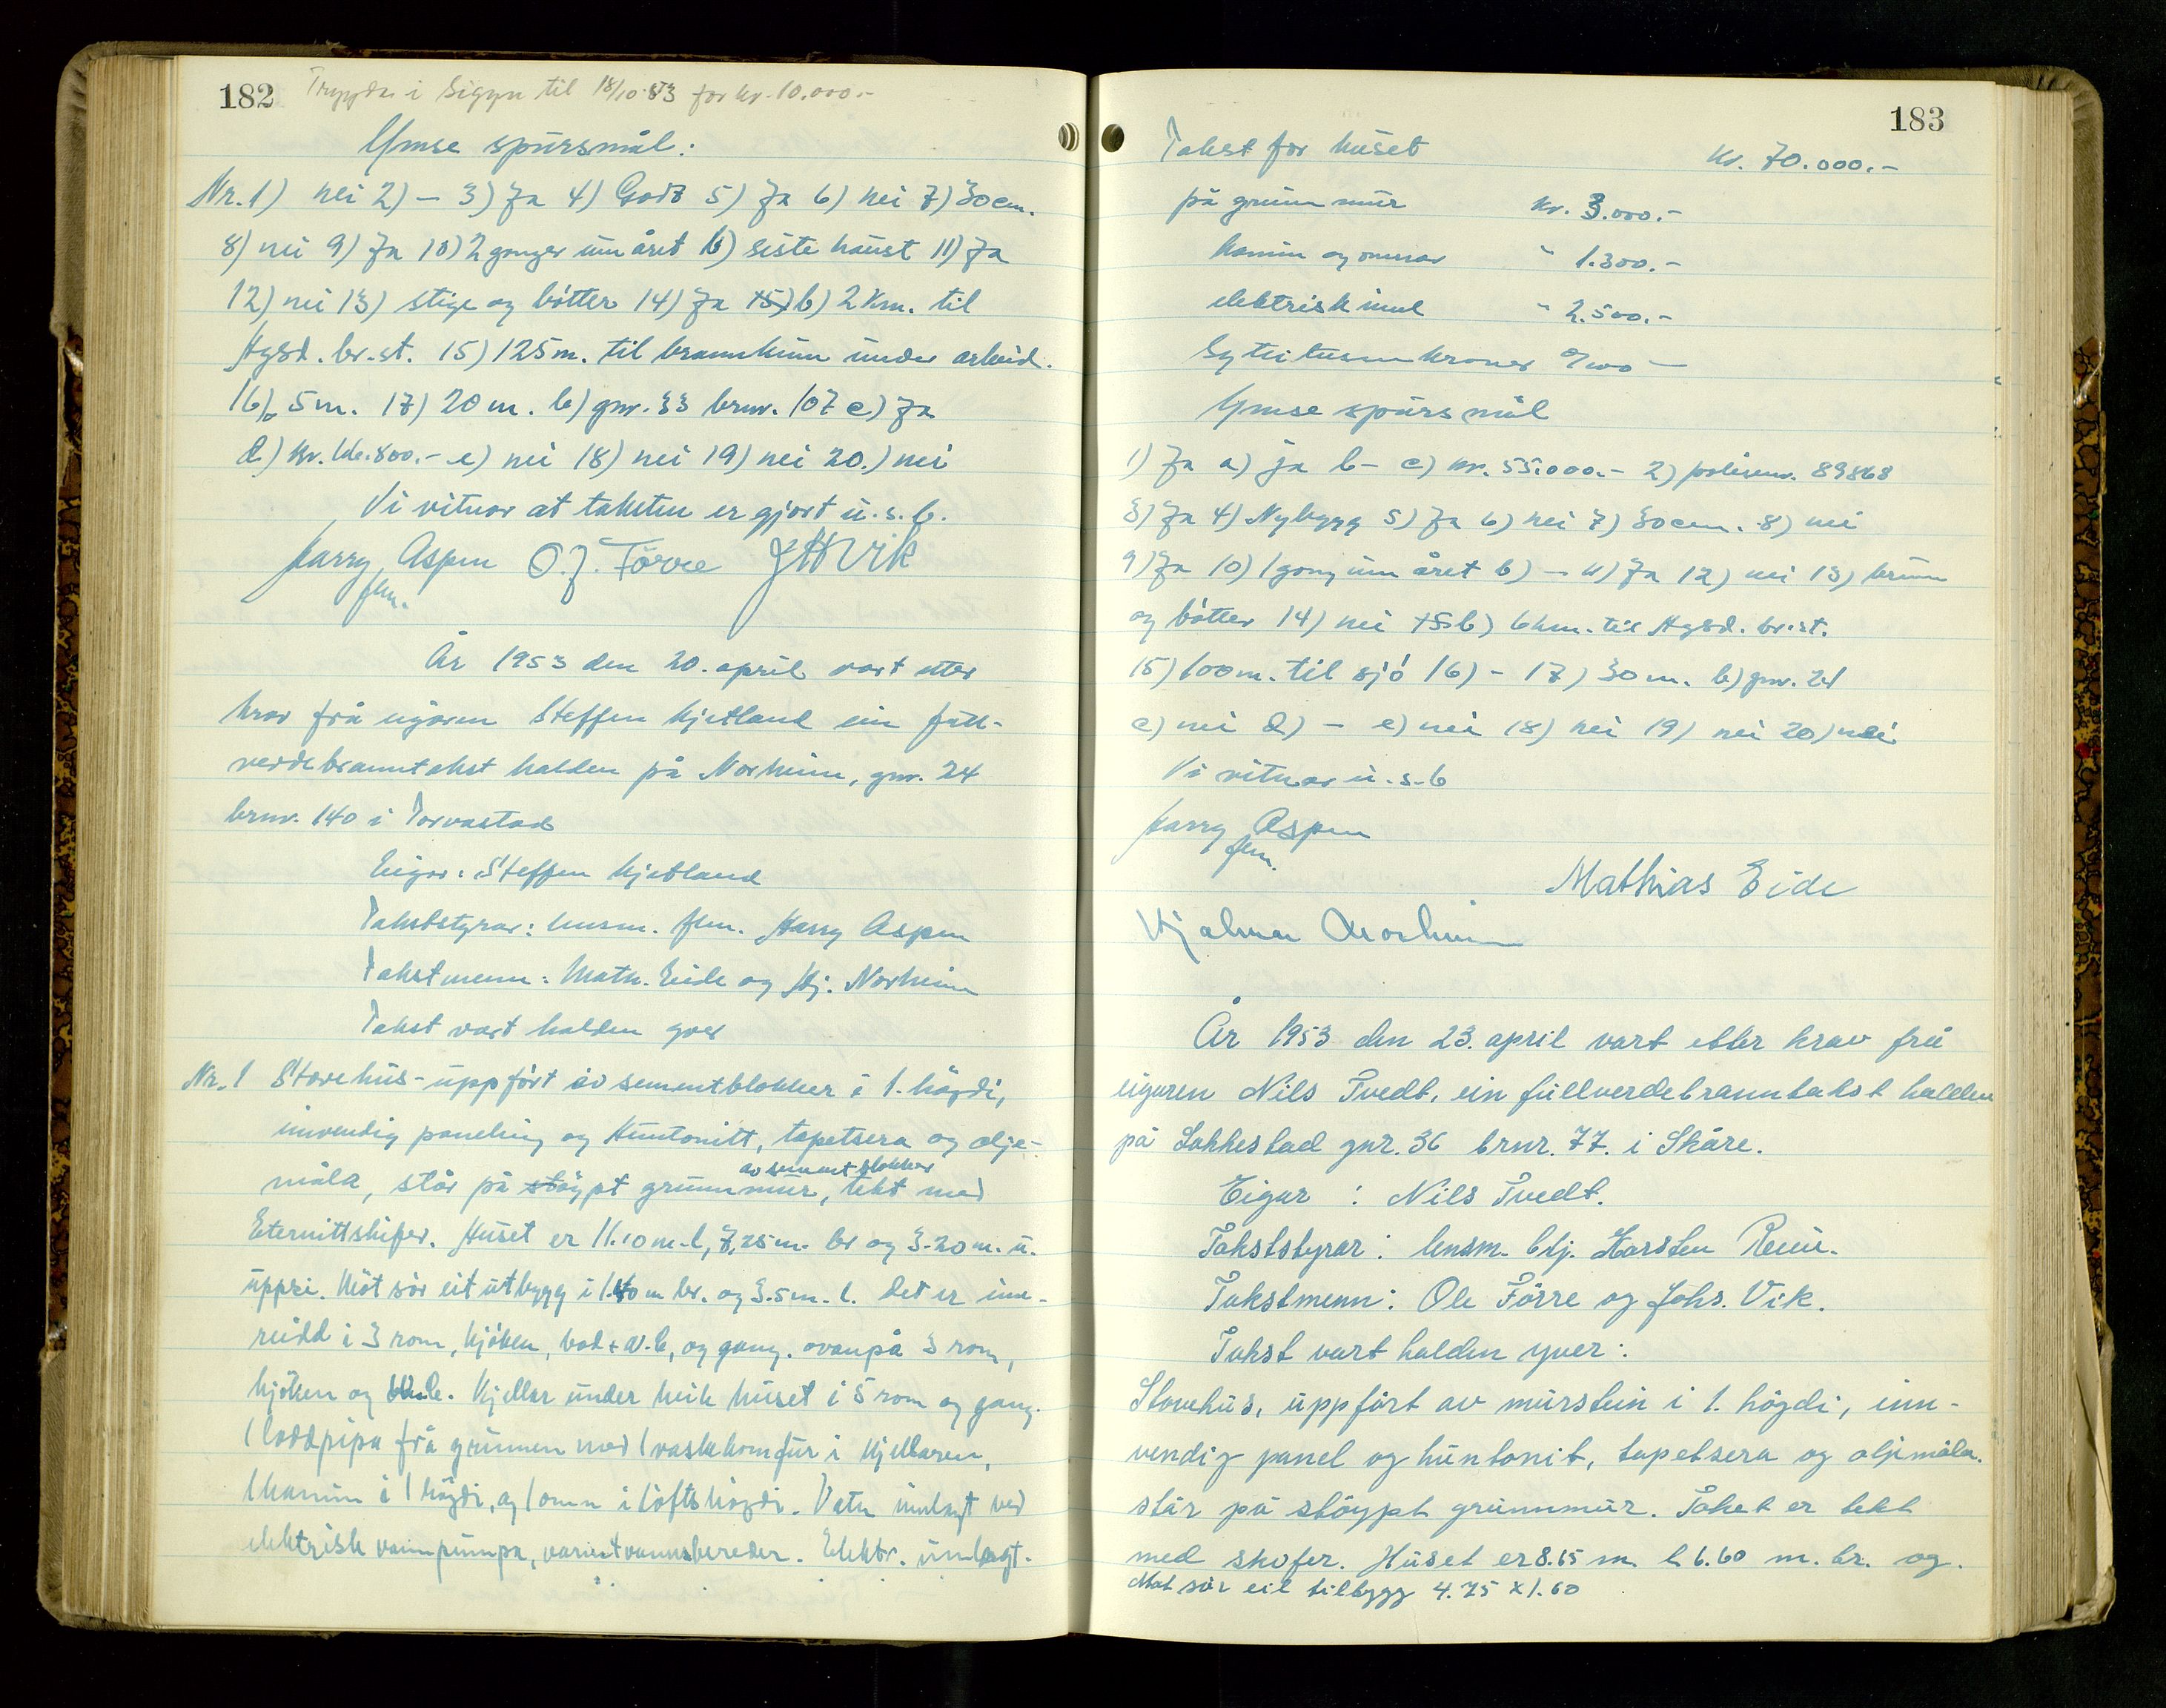 182 Trygda i Sigyn til 18/10-53 for kr. 10.000.-
Ymse spursmål:
Nr. 1) nei 2) - 3) Ja 4) Godt 5) Ja 6) nei 7) 30 cm.
8) nei 9) Ja 10) 2 gonger um året b) siste haust 11) Ja
12) nei 13) stige og bøtter 14) Ja 15) b) 2 km. til
Hgsd. br.st. 15) 125 m. til brannkum under arbeid.
16) 5 m. 17) 20 m. b) gnr. 33 brnr. 107 c) Ja
d.) kr. 800.- e) nei 18) nei 19) nei 20.) nei
Vi vitnar at taksten er gjort u.s.b.
Harry Aspen O. J. Førre J H Vik
flm.
År 1953 den 20. april vart etter
krav frå eigaren Steffen Kjetland ein full-
verdebranntakst halden på Norheim, gnr. 24
brnr. 140 i Torvastad
Eigar: Steffen Kjetland
Takststyrar: lensm. flm. Harry Aspen
Takstmenn: Math. Eide og Hj. Norheim
Takst vart halden yver
Nr. 1 Stovehus - uppført av sementblokker i 1. høgdi,
innvendig paneling og Huntonitt, tapetsera og olje-
måla, står på støypt grunnmur, av sementblokker tekt med
Eternittskifer. Huset er 11.10 m. l, 7,25 m. br og 3.20 m. u.
uppri. Mot sør eit utbygg i 1.40 m br. og 3.5 m. l. Det er inn-
reidd i 3 rom, kjøken, bad + W.C, og gang. ovanpå 3 rom,
kjøken og. Kjellar under heile huset i 5 rom og gang.
1 loddpipa frå grunnen med 1 vaskekomfur i kjellaren,
1 kamin i 1 høgdi, og 1 omn i loftshøgdi. Vatn innlagt ved
elektrisk vannpumpa, varmtvannsbereder. Elektr. innlagt.
183
Takst for huset kr. 70.000.-
på grunnmur kr. 3.000.-
kamin og omnar " 1.300.-
elektrisk innl " 2.500.-
Sytti tusen kroner 0/100 -
Ymse spursmål
1) Ja a) ja b - c) kr. 55.000.- 2) polisenr. 89868
3) Ja 4) Nybygg 5) Ja 6) nei 7) 30 cm. 8) nei
9) Ja 10) 1 gong um året b) - 11) Ja 12) nei 13) brunn
og bøtter 14) nei 15 b) 6 km. til Hgsd. br.st.
15) 100 m. til sjø 16) - 17) 30 m. b) gnr. 24
c) nei d) - e) nei 18) nei 19) nei 20) nei
Vi vitnar u.s.b
Harry Aspen
flm.
Mathias Eide
Hjalmar Norheim
År 1953 den 23. april vart etter krav frå
eigaren Nils Tvedt, ein fullverdebranntakst halden
på Sakkestad gnr. 36 brnr. 77. i Skåre.
Eigar : Nils Tvedt.
Takststyrar: lensm. btj. Karsten
Takstmenn: Ole Førre og Johs. Vik.
Takst vart halden yver:
Stovehus, uppført av murstein i 1. høgdi, inn-
vendig panel og huntonit, tapetsera og oljemåla.
står på støypt grunnmur. Taket er tekt
med skofer. Huset er 8.65 m l. 6.60 m. br. og.
Mot sør eit tilbygg 4.75 x 1.60